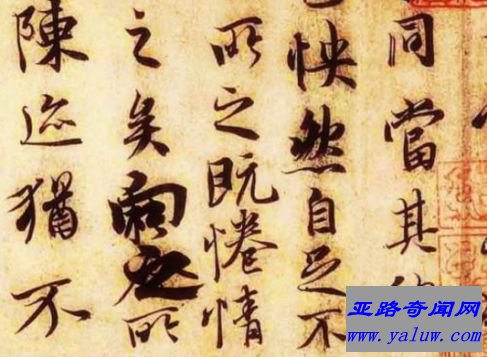 同當其
怏然自足不
所之既惓情
之矣向之所
陳迹猶不
亚路奇闻网
www.yaluw.com